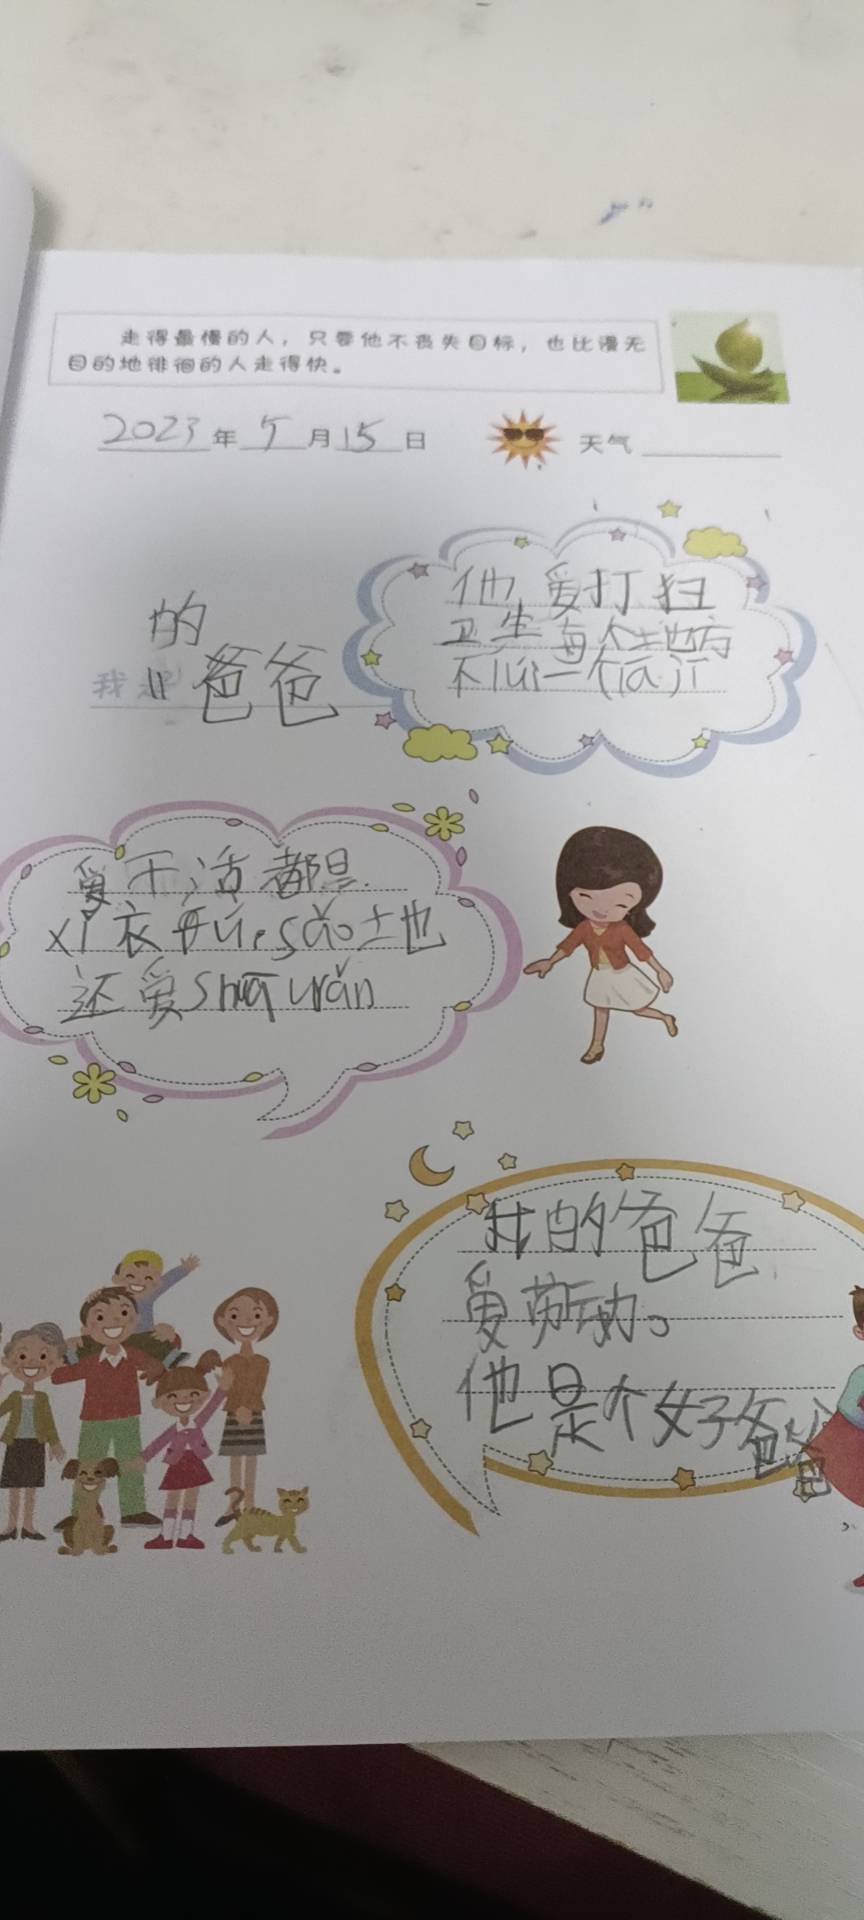 走得最慢的人，只要他不丧失目标，也比漫无
目的地徘徊的人走得快。
2023年5月15日
天气
的
我 爸爸
他爱打扫
卫生每个地方
不
爱干活都是
xǐ衣 sǎo地
还爱
我的爸爸
爱劳动。
他是个女子爸爸